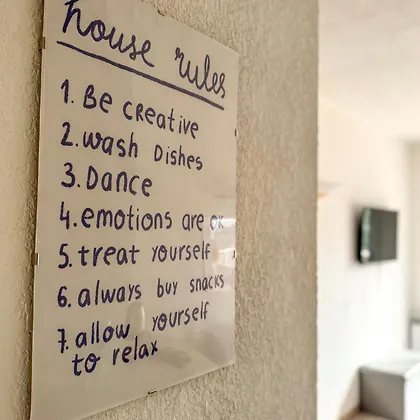 house rules
1. Be creative
2. wash Dishes
3. Dance
4. emotions are ok
5. treat yourself
6. always buy snacks
7. allow yourself
to relax